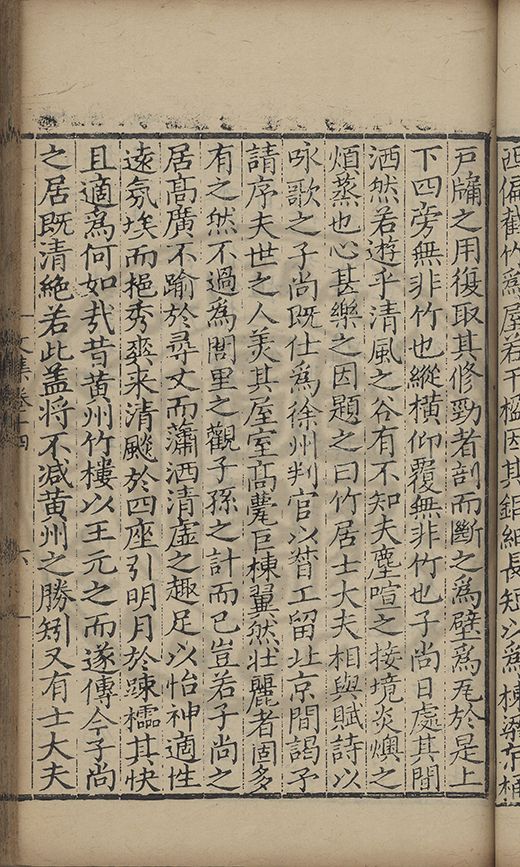 西偏截竹為屋若干楹因其鉅細長短以為棟
戸牗之用復取其修勁者剖而斷之為壁為瓦於是上
下四旁無非竹也縱橫仰覆無非竹也子尚日處其間
洒然若遊乎清風之谷有不知夫塵喧之接境炎燠之
煩蒸也心甚樂之因題之曰竹居士大夫相與賦詩以
咏歌之子尚旣仕為徐州判官以督工留北京間謁予
請序夫世之人羙其屋室髙甍巨棟翼然壯麗者固多
有之然不過為閭里之觀子孫之計而已豈若子尚之
居髙廣不踰於尋丈而蕭洒清虛之趣足以怡神適性
逺氛埃而挹秀爽来清飇於四座引明月於踈櫺其快
且適為何如㢤昔黄州竹樓以王元之而遂傳今子尚
之居旣清絶若此盖将不减黄州之勝矧又有士大夫
文集卷十四
六